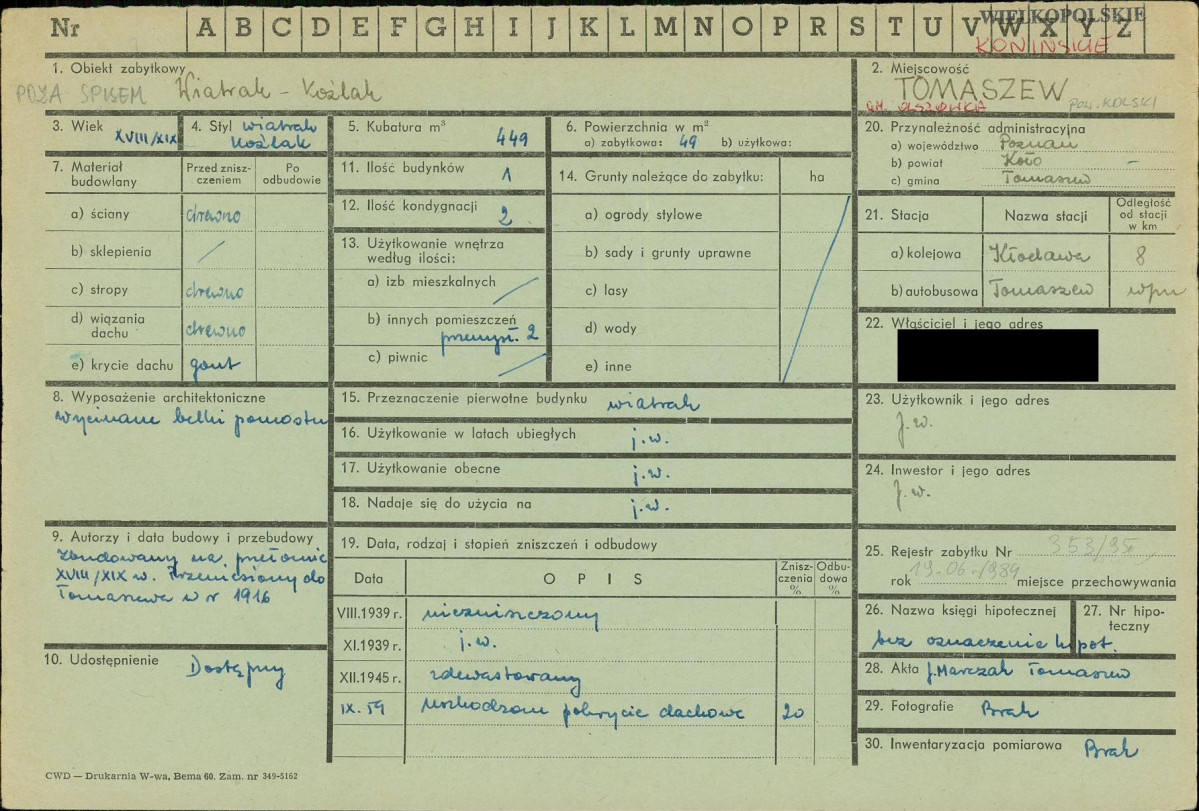 Nr A B C D E F G H I J K L M N O P R S T U V W X Y Z
WIELKOPOLSKIE
KONIŃSKIE
1. Obiekt zabytkowy
POZA SPISEM Wiatrak - Koźlak
2. Miejscowość
TOMASZEW
GM. OLSZÓWKA POW. KOLSKI
3. Wiek XVIII/XIX
4. Styl wiatrak
koźlak
5. Kubatura m³ 449
6. Powierzchnia w m²
a) zabytkowa: 49 b) użytkowa:
7. Materiał budowlany
Przed zniszczeniem
Po odbudowie
a) ściany drewno
b) sklepienia /
c) stropy drewno
d) wiązania dachu drewno
e) krycie dachu gont
8. Wyposażenie architektoniczne
wycinane belki pomostu
9. Autorzy i data budowy i przebudowy
zbudowany na przełomie
XVIII/XIX w. Przeniesiony do
Tomaszewa w r 1916
10. Udostępnienie Dostępny
11. Ilość budynków 1
12. Ilość kondygnacji 2
13. Użytkowanie wnętrza
według ilości:
a) izb mieszkalnych
b) innych pomieszczeń
przemysł. 2
c) piwnic
14. Grunty należące do zabytku: ha
a) ogrody stylowe
b) sady i grunty uprawne
c) lasy
d) wody
e) inne
15. Przeznaczenie pierwotne budynku wiatrak
16. Użytkowanie w latach ubiegłych j.w.
17. Użytkowanie obecne j.w.
18. Nadaje się do użycia na j.w.
19. Data, rodzaj i stopień zniszczeń i odbudowy
Data OPIS Zniszczenia % Odbudowa %
VIII.1939 r. niezniszczony
XI.1939 r. j.w.
XII.1945 r. zdewastowany
IX.59 uszkodzone pokrycie dachowe 20
20. Przynależność administracyjna
a) województwo Poznań
b) powiat Koło -
c) gmina Tomaszew
21. Stacja Nazwa stacji Odległość od stacji w km
a) kolejowa Kłodawa 8
b) autobusowa Tomaszew
22. Właściciel i jego adres
23. Użytkownik i jego adres
J.w.
24. Inwestor i jego adres
J.w.
25. Rejestr zabytku Nr 353/95
rok 19.06.1989 miejsce przechowywania
26. Nazwa księgi hipotecznej
27. Nr hipoteczny
bez oznaczenia hipot.
28. Akta J. Marczak Tomaszew
29. Fotografie Brak
30. Inwentaryzacja pomiarowa Brak
CWD — Drukarnia W-wa, Bema 60. Zam. nr 349-5162